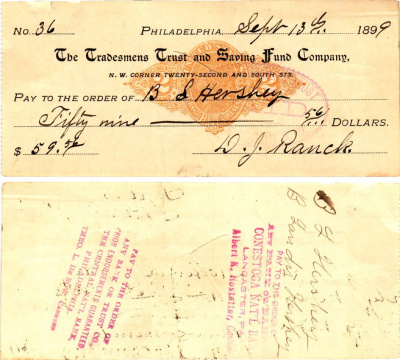 No. 36 Philadelphia, Sept 13th 1899
The Tradesmens Trust and Saving Fund Company,
N. W. CORNER TWENTY-SECOND AND SOUTH STS.
PAY TO THE ORDER OF B S Hershey
Fifty nine 56/ DOLLARS.
$ 59.56 D. J. Ranck.
PAY TO THE ORDER OF
ANY BANK OR TRUST CO.
PRIOR ENDORSEMENTS GUARANTEED
THE CENTRAL NAT'L BANK,
PHILADELPHIA
B S Hershey
B Landis Hershey
PAY TO THE ORDER OF
CONESTOGA NAT'L B
LANCASTER, PA.
Albert K. Hostetter,